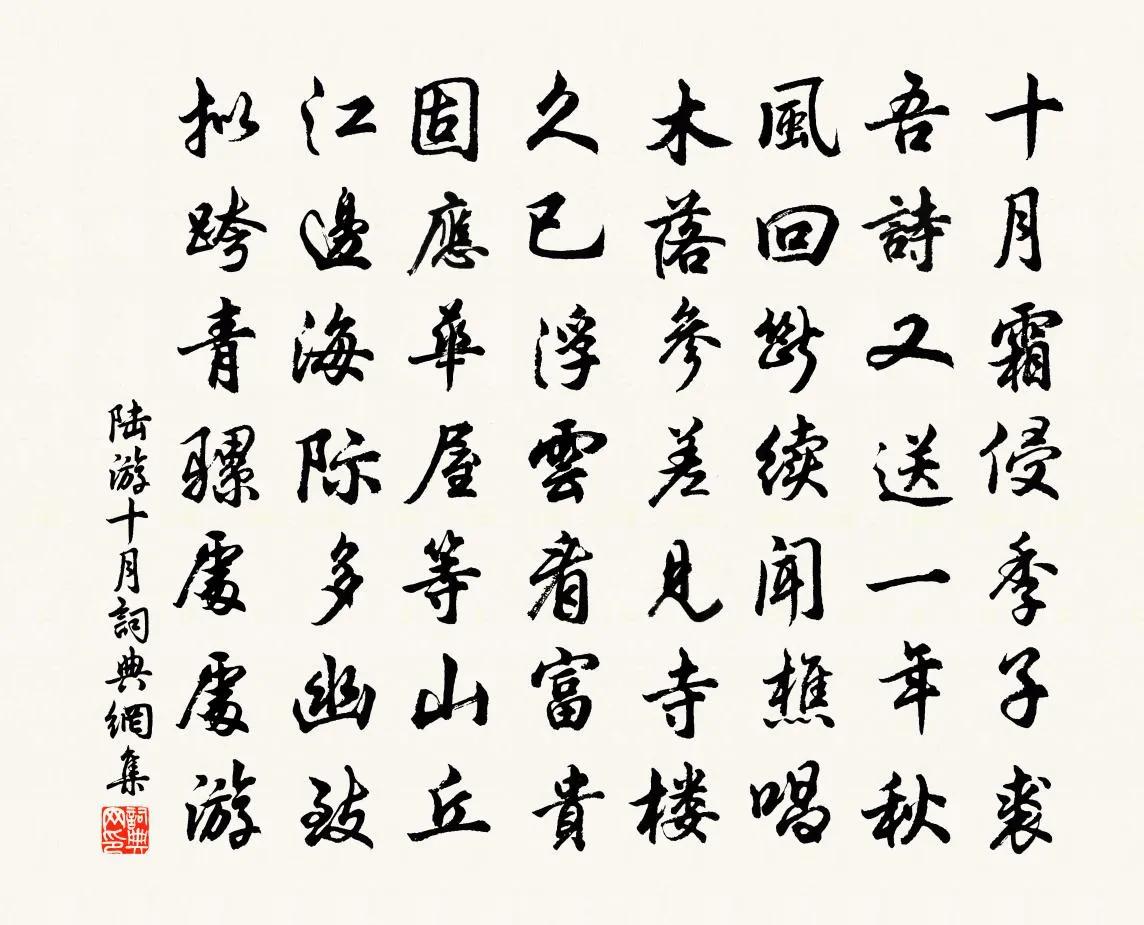 十月霜侵季子裘
吾詩又送一年秋
風回斷續聞樵唱
木落參差見寺楼
久已浮雲看富貴
固應華屋等山丘
江邊海际多幽致
拟跨青騾處處游
陆游十月詞典網集
詞典
网印